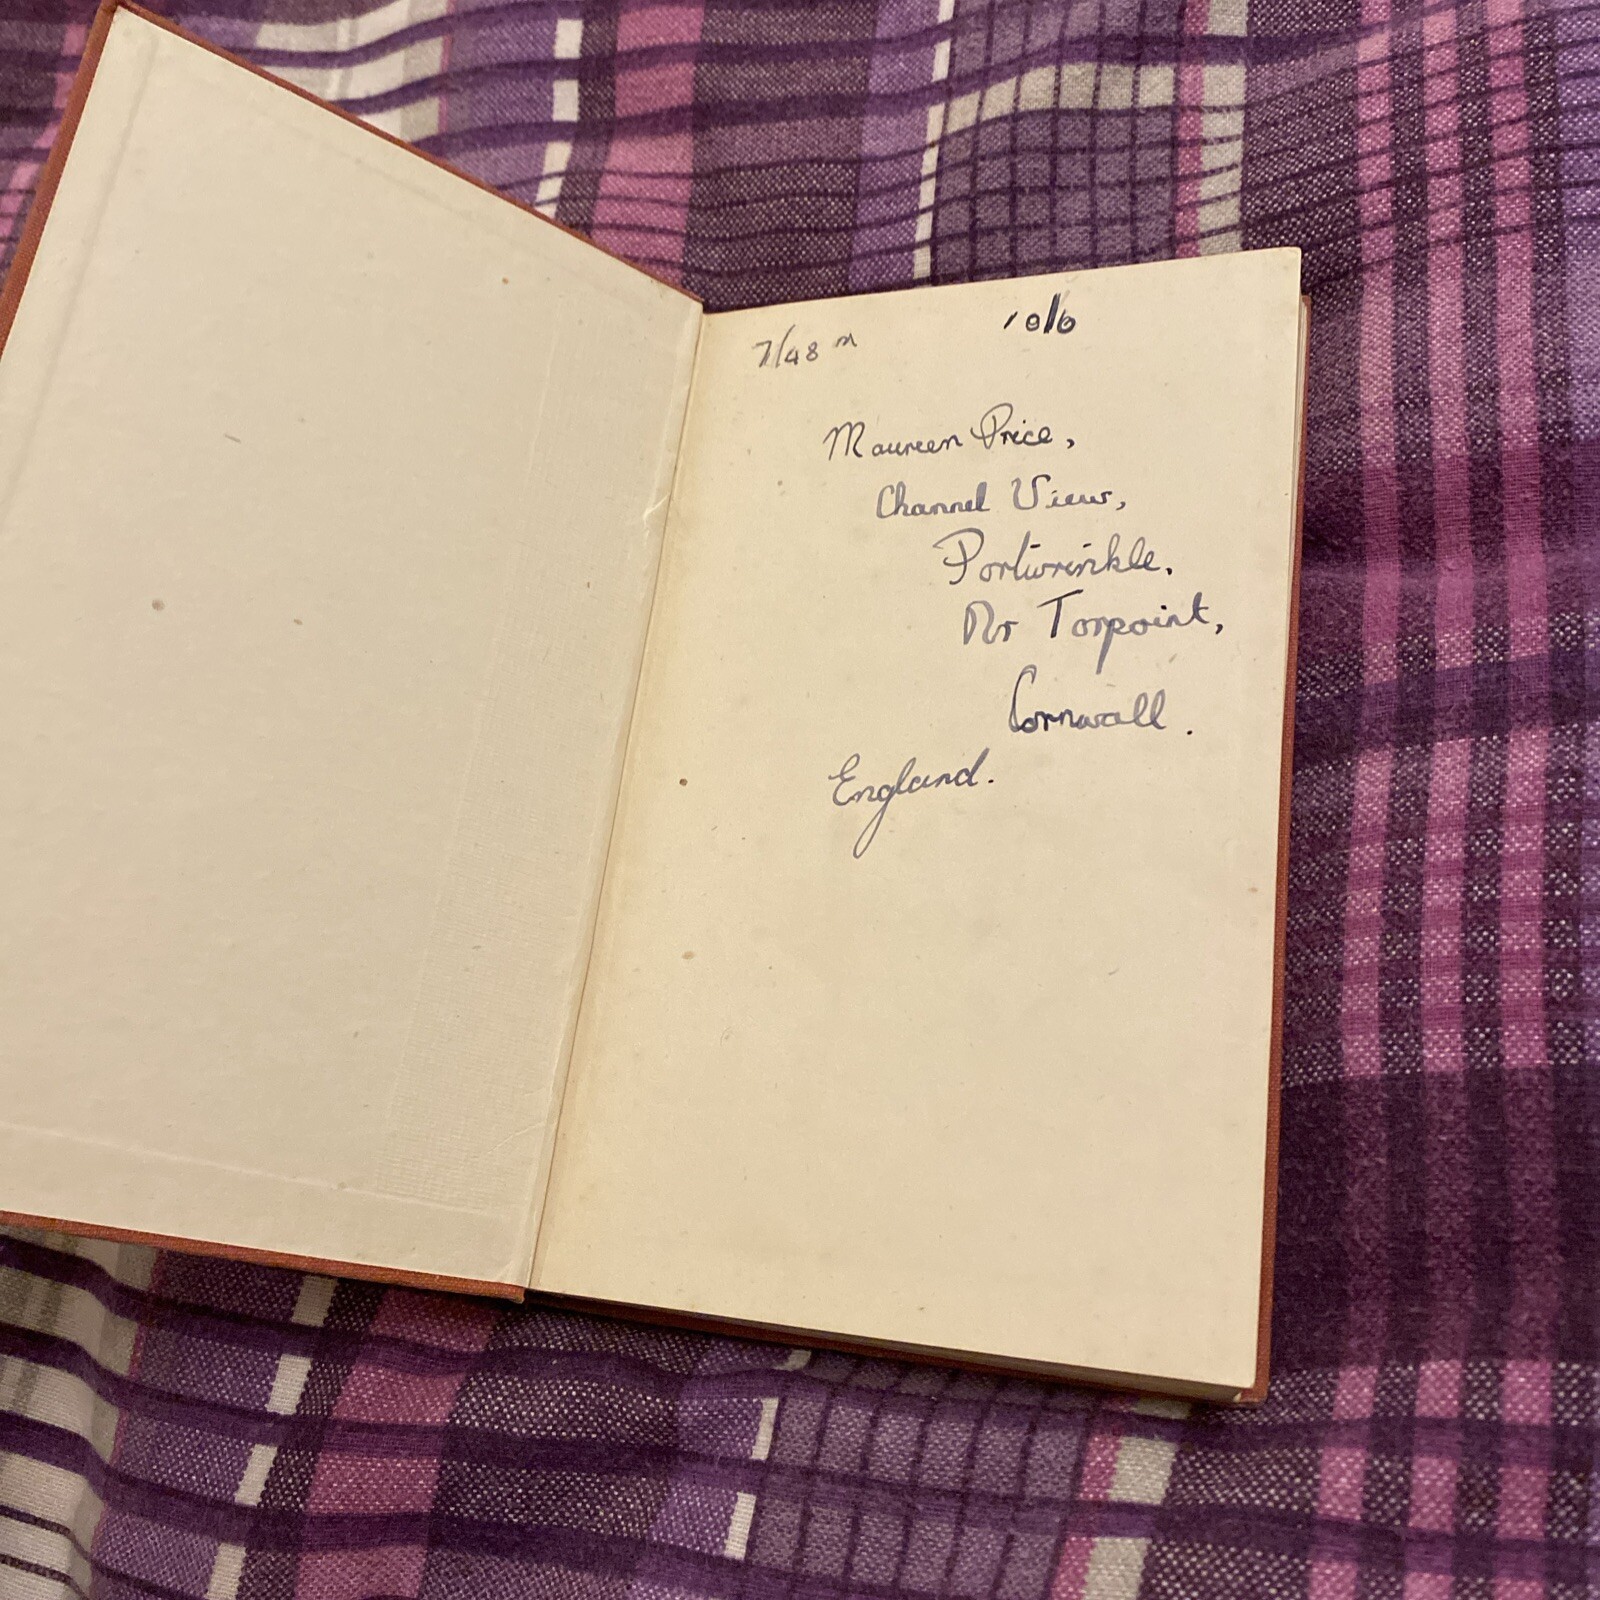 7/48 m
10/6
Maureen Price,
Channel View,
Portwrinkle.
Nr Torpoint,
Cornwall.
England.